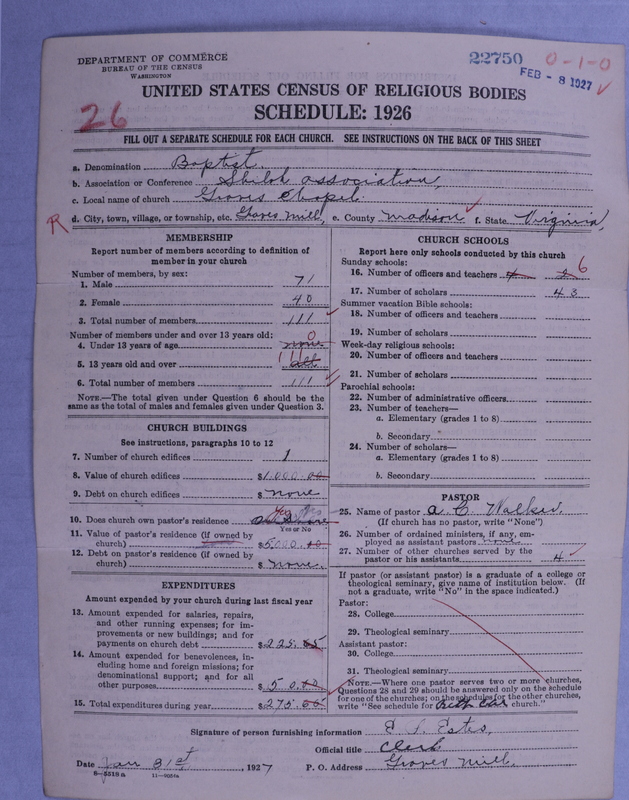 DEPARTMENT OF COMMERCE
BUREAU OF THE CENSUS
WASHINGTON
22750 0-1-0
FEB - 8 1927
UNITED STATES CENSUS OF RELIGIOUS BODIES
26 SCHEDULE: 1926
FILL OUT A SEPARATE SCHEDULE FOR EACH CHURCH. SEE INSTRUCTIONS ON THE BACK OF THIS SHEET
a. Denomination Baptist
b. Association or Conference Shiloh association,
c. Local name of church Graves Chapel.
R d. City, town, village, or township, etc. Graves Mill, e. County Madison f. State Virginia,
MEMBERSHIP
Report number of members according to definition of
member in your church
Number of members, by sex:
1. Male 71
2. Female 40
3. Total number of members 111
Number of members under and over 13 years old: 0
4. Under 13 years of age none
5. 13 years old and over 111 all
6. Total number of members 111
NOTE.—The total given under Question 6 should be
the same as the total of males and females given under Question 3.
CHURCH BUILDINGS
See instructions, paragraphs 10 to 12
7. Number of church edifices 1
8. Value of church edifices $1,000.00
9. Debt on church edifices $ none
10. Does church own pastor's residence Yes
Yes or No
11. Value of pastor's residence (if owned by
church) $5,000.00
12. Debt on pastor's residence (if owned by
church) $ none.
EXPENDITURES
Amount expended by your church during last fiscal year
13. Amount expended for salaries, repairs,
and other running expenses; for im-
provements or new buildings; and for
payments on church debt $225.65
14. Amount expended for benevolences, in-
cluding home and foreign missions; for
denominational support; and for all
other purposes $50.00
15. Total expenditures during year $275.65
CHURCH SCHOOLS
Report here only schools conducted by this church
Sunday schools:
16. Number of officers and teachers 6
17. Number of scholars 43
Summer vacation Bible schools:
18. Number of officers and teachers
19. Number of scholars
Week-day religious schools:
20. Number of officers and teachers
21. Number of scholars
Parochial schools:
22. Number of administrative officers
23. Number of teachers—
a. Elementary (grades 1 to 8)
b. Secondary
24. Number of scholars—
a. Elementary (grades 1 to 8)
b. Secondary
PASTOR
25. Name of pastor A. C. Walker.
(If church has no pastor, write "None")
26. Number of ordained ministers, if any, em-
ployed as assistant pastors
27. Number of other churches served by the
pastor or his assistants 4
If pastor (or assistant pastor) is a graduate of a college or
theological seminary, give name of institution below. (If
not a graduate, write "No" in the space indicated.)
Pastor:
28. College
29. Theological seminary
Assistant pastor:
30. College
31. Theological seminary
NOTE.—Where one pastor serves two or more churches,
Questions 28 and 29 should be answered only on the schedule
for one of the churches; on the schedules for the other churches,
write "See schedule for Beth Car church."
Signature of person furnishing information E. S. Estes,
Official title Clerk
Date Jan 31st, 1927 P. O. Address Graves Mill.
8-5518a 11-9054a